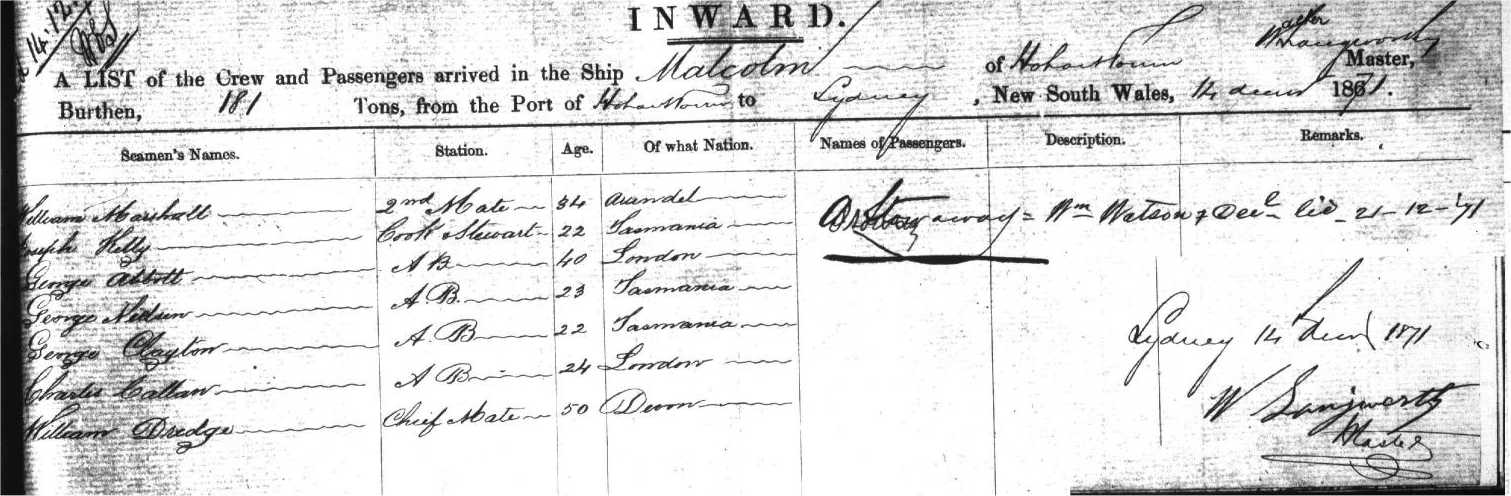 14.12.
INWARD.
A LIST of the Crew and Passengers arrived in the Ship Malcolm of Hobartown Walter Langworthy Master,
Burthen, 181 Tons, from the Port of Hobartown to Sydney, New South Wales, 14 decr 1871.
Seamen's Names. Station. Age. Of what Nation. Names of Passengers. Description. Remarks.
William Marshall 2nd Mate 34 Arundel
Joseph Kelly Cook & Stewart 22 Tasmania
A Stowaway = Wm Watson 21-12-71
George Abbott A B 40 London
George A.B. 23 Tasmania
George Clayton A B 22 Tasmania
Charles Callan A B 24 London
William Dredge Chief Mate 50 Devon
Sydney 14 decr 1871
W Langworthy
Master